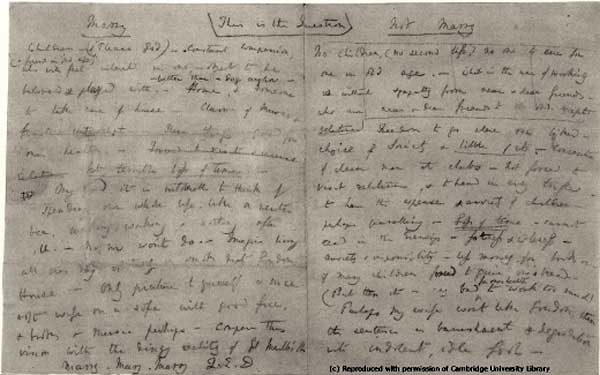 This is the Question
Marry
Children — (if it Please God) — Constant companion,
(& friend in old age) who will feel interested in one — object to be
— better than a dog anyhow.
beloved & played with. — Home, & someone
to take care of house — Charms of music &
female chit-chat. — These things good for
one's health. —
but terrible loss of time. —
My God, it is intolerable to think of
spending one's whole life, like a neuter
bee, working, working, & nothing after
all. — No, no won't do. — Imagine living
all one's day solitary in smoky dirty London
House. — Only picture to yourself a nice
soft wife on a sofa with good fire,
& books & music perhaps — Compare this
vision with the dingy reality of Grt. Marlbro' St.
Marry — Mary — Marry Q.E.D.
Not Marry
No children, (no second life), no one to care for
one in old age. — What is the use of working
without sympathy from near & dear friends —
who are near & dear friends to the old, except
relatives Freedom to go where one liked —
choice of Society & little of it. — Conversation
of clever men at clubs — Not forced to
visit relatives, & to bend in every trifle. —
to have the expense & anxiety of children —
perhaps quarelling — Loss of time. — cannot
read in the Evenings — fatness & idleness —
Anxiety & responsibility — less money for books &c —
if many children forced to gain one's bread. —
(But then it is very bad for ones health to work too much)
Perhaps my wife wont like London; then
the sentence is banishment & degradation
into indolent, idle fool —
(c) Reproduced with permission of Cambridge University Library